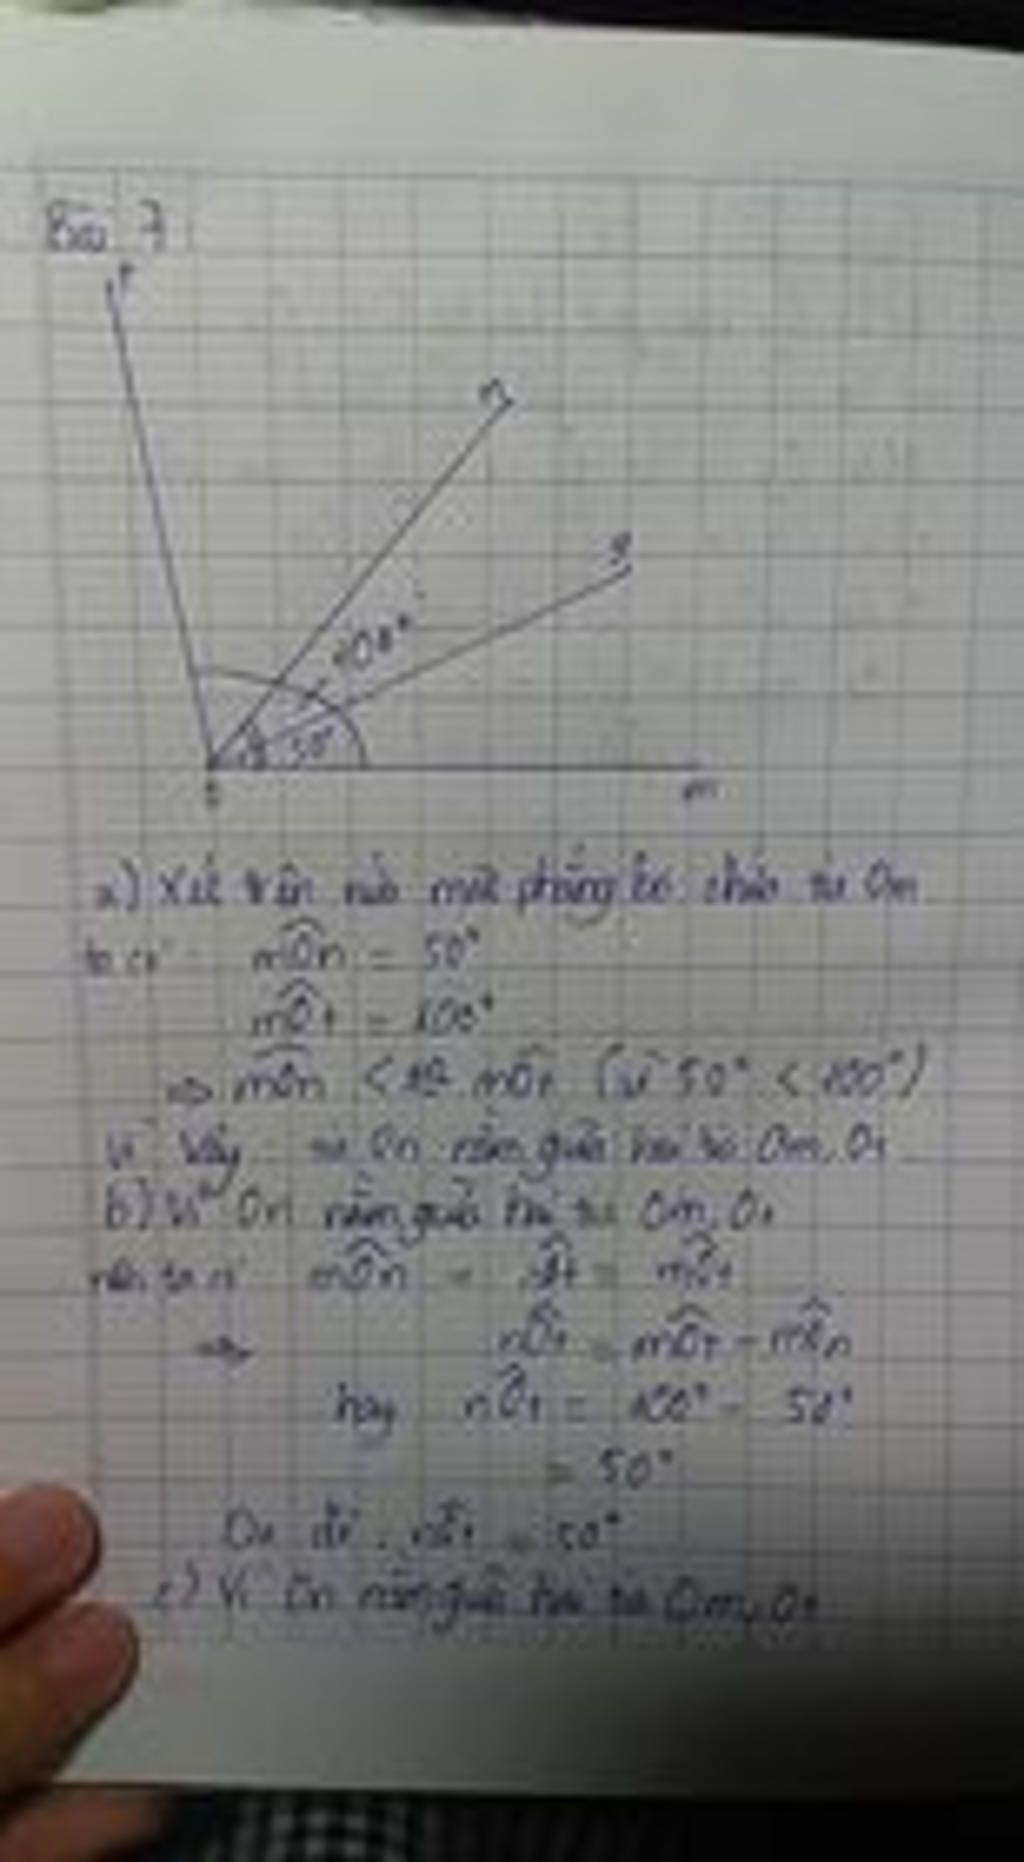 Bài 7
t
n
100°
50°
m
a) Xét trên nửa mặt phẳng bờ chứa tia Om
ta có: mÔn = 50°
mÔt = 100°
=> mÔn < mÔt (vì 50° < 100°)
Vì vậy tia On nằm giữa hai tia Om, Ot
b) Vì On nằm giữa hai tia Om, Ot
nên ta có mÔn = mÔt
=> nÔt = mÔt - mÔn
hay nÔt = 100° - 50°
= 50°
Do đó nÔt = 50°
c) Vì On nằm giữa hai tia Om, Ot